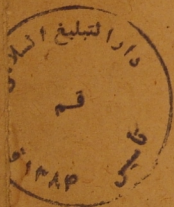 دارالتبلیغ اسلامی
قم
تاسیس